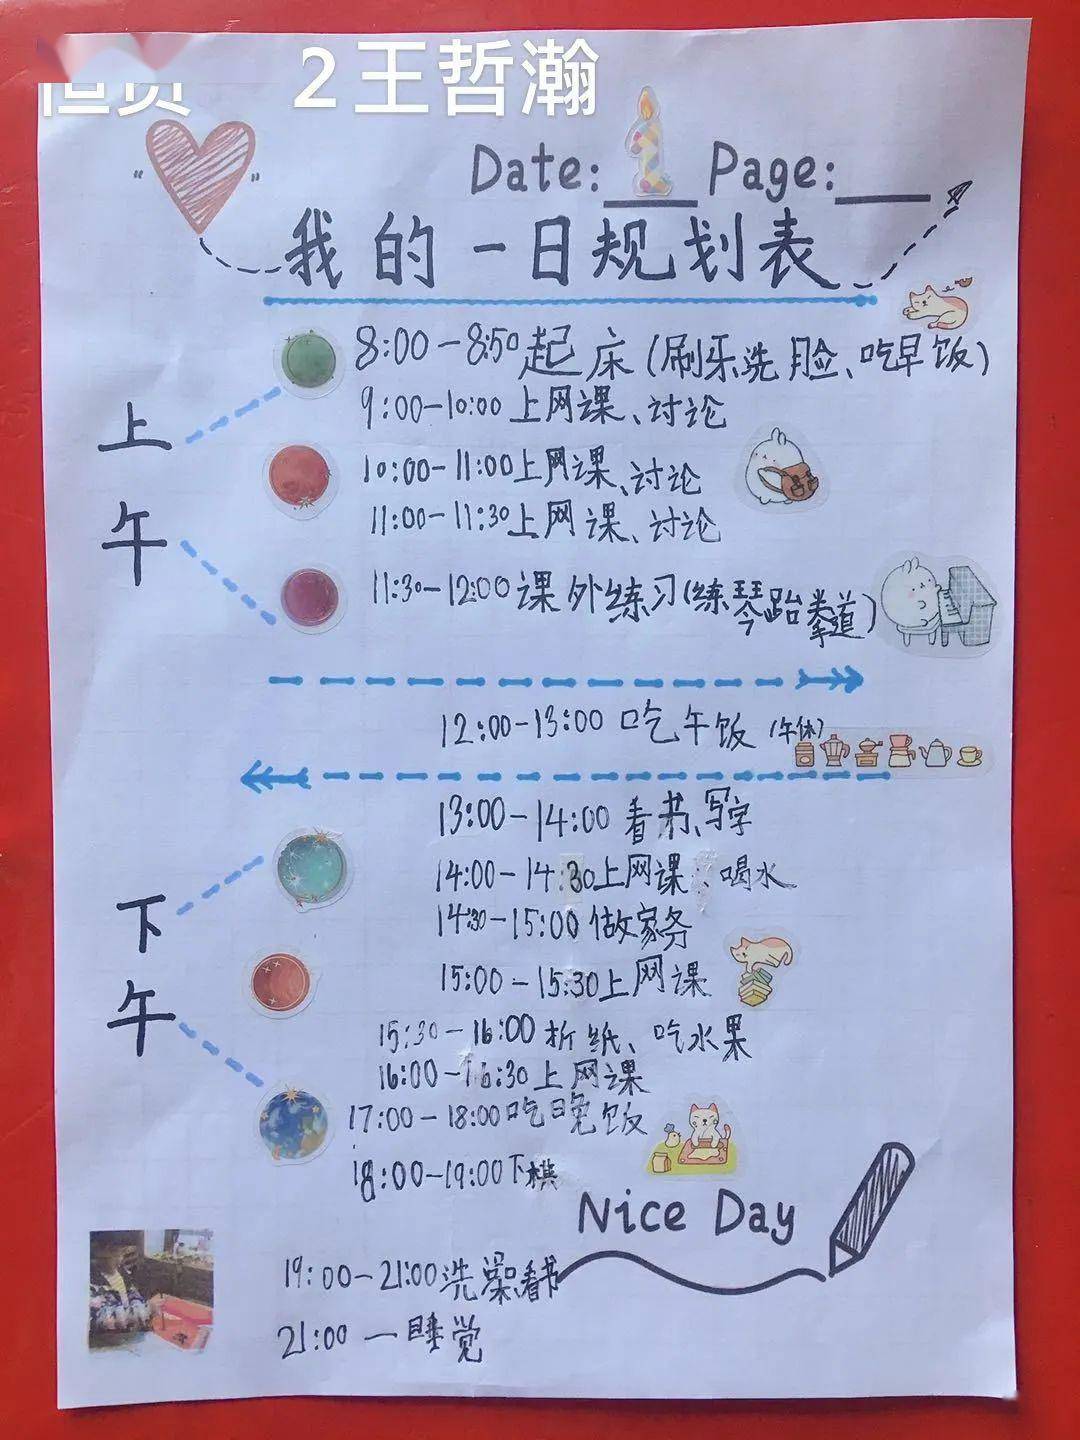 2王哲瀚
Date: 1 Page:
我的一日规划表
上午
8:00-8:50起床(刷乐洗脸、吃早饭)
9:00-10:00上网课、讨论
10:00-11:00上网课、讨论
11:00-11:30上网课、讨论
11:30-12:00课外练习(练琴跆拳道)
12:00-13:00吃午饭(午休)
下午
13:00-14:00看书、写字
14:00-14:30上网课、喝水
14:30-15:00做家务
15:00-15:30上网课
15:30-16:00折纸、吃水果
16:00-16:30上网课
17:00-18:00吃晚饭
18:00-19:00下棋
Nice Day
19:00-21:00洗澡、看书
21:00一睡觉